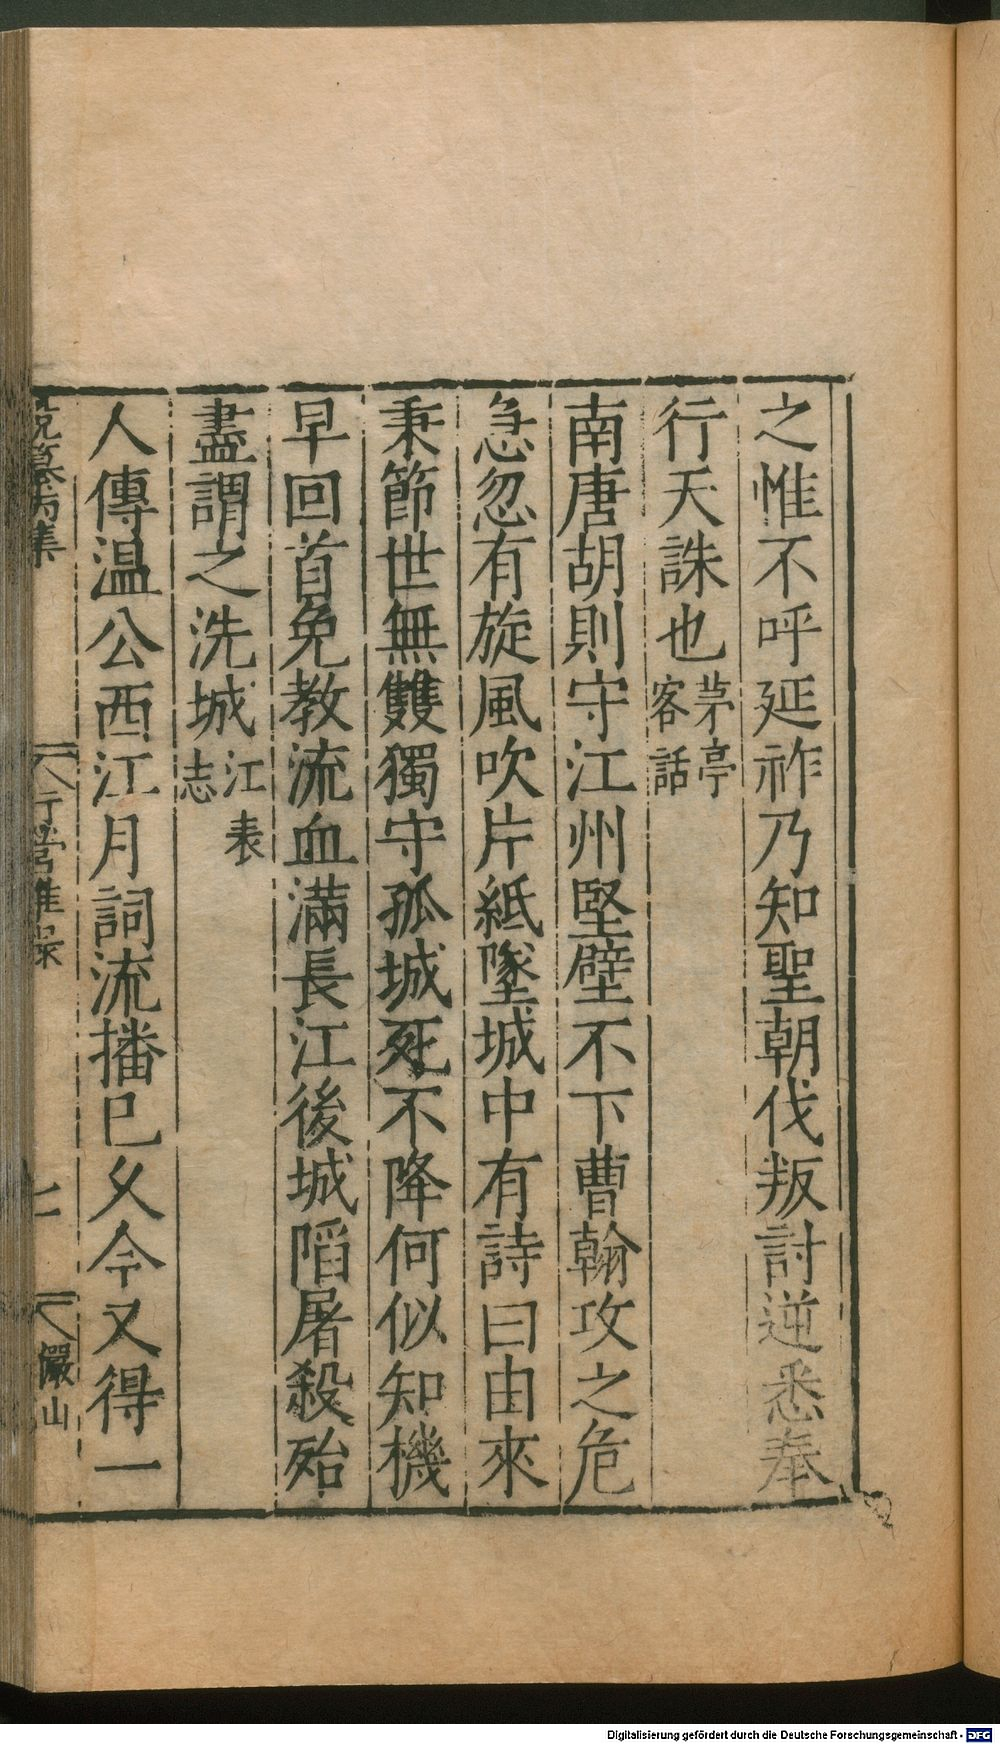 之惟不呼延祚乃知聖朝伐叛討逆悉奉
行天誅也茅亭客話
南唐胡則守江州堅壁不下曹翰攻之危
急忽有旋風吹片紙墜城中有詩曰由來
秉節世無雙獨守孤城死不降何似知機
早回首免教流血滿長江後城陷屠殺殆
盡謂之洗城江表志
人傳温公西江月詞流播已久今又得一
儼山
Digitalisierung gefördert durch die Deutsche Forschungsgemeinschaft - DFG